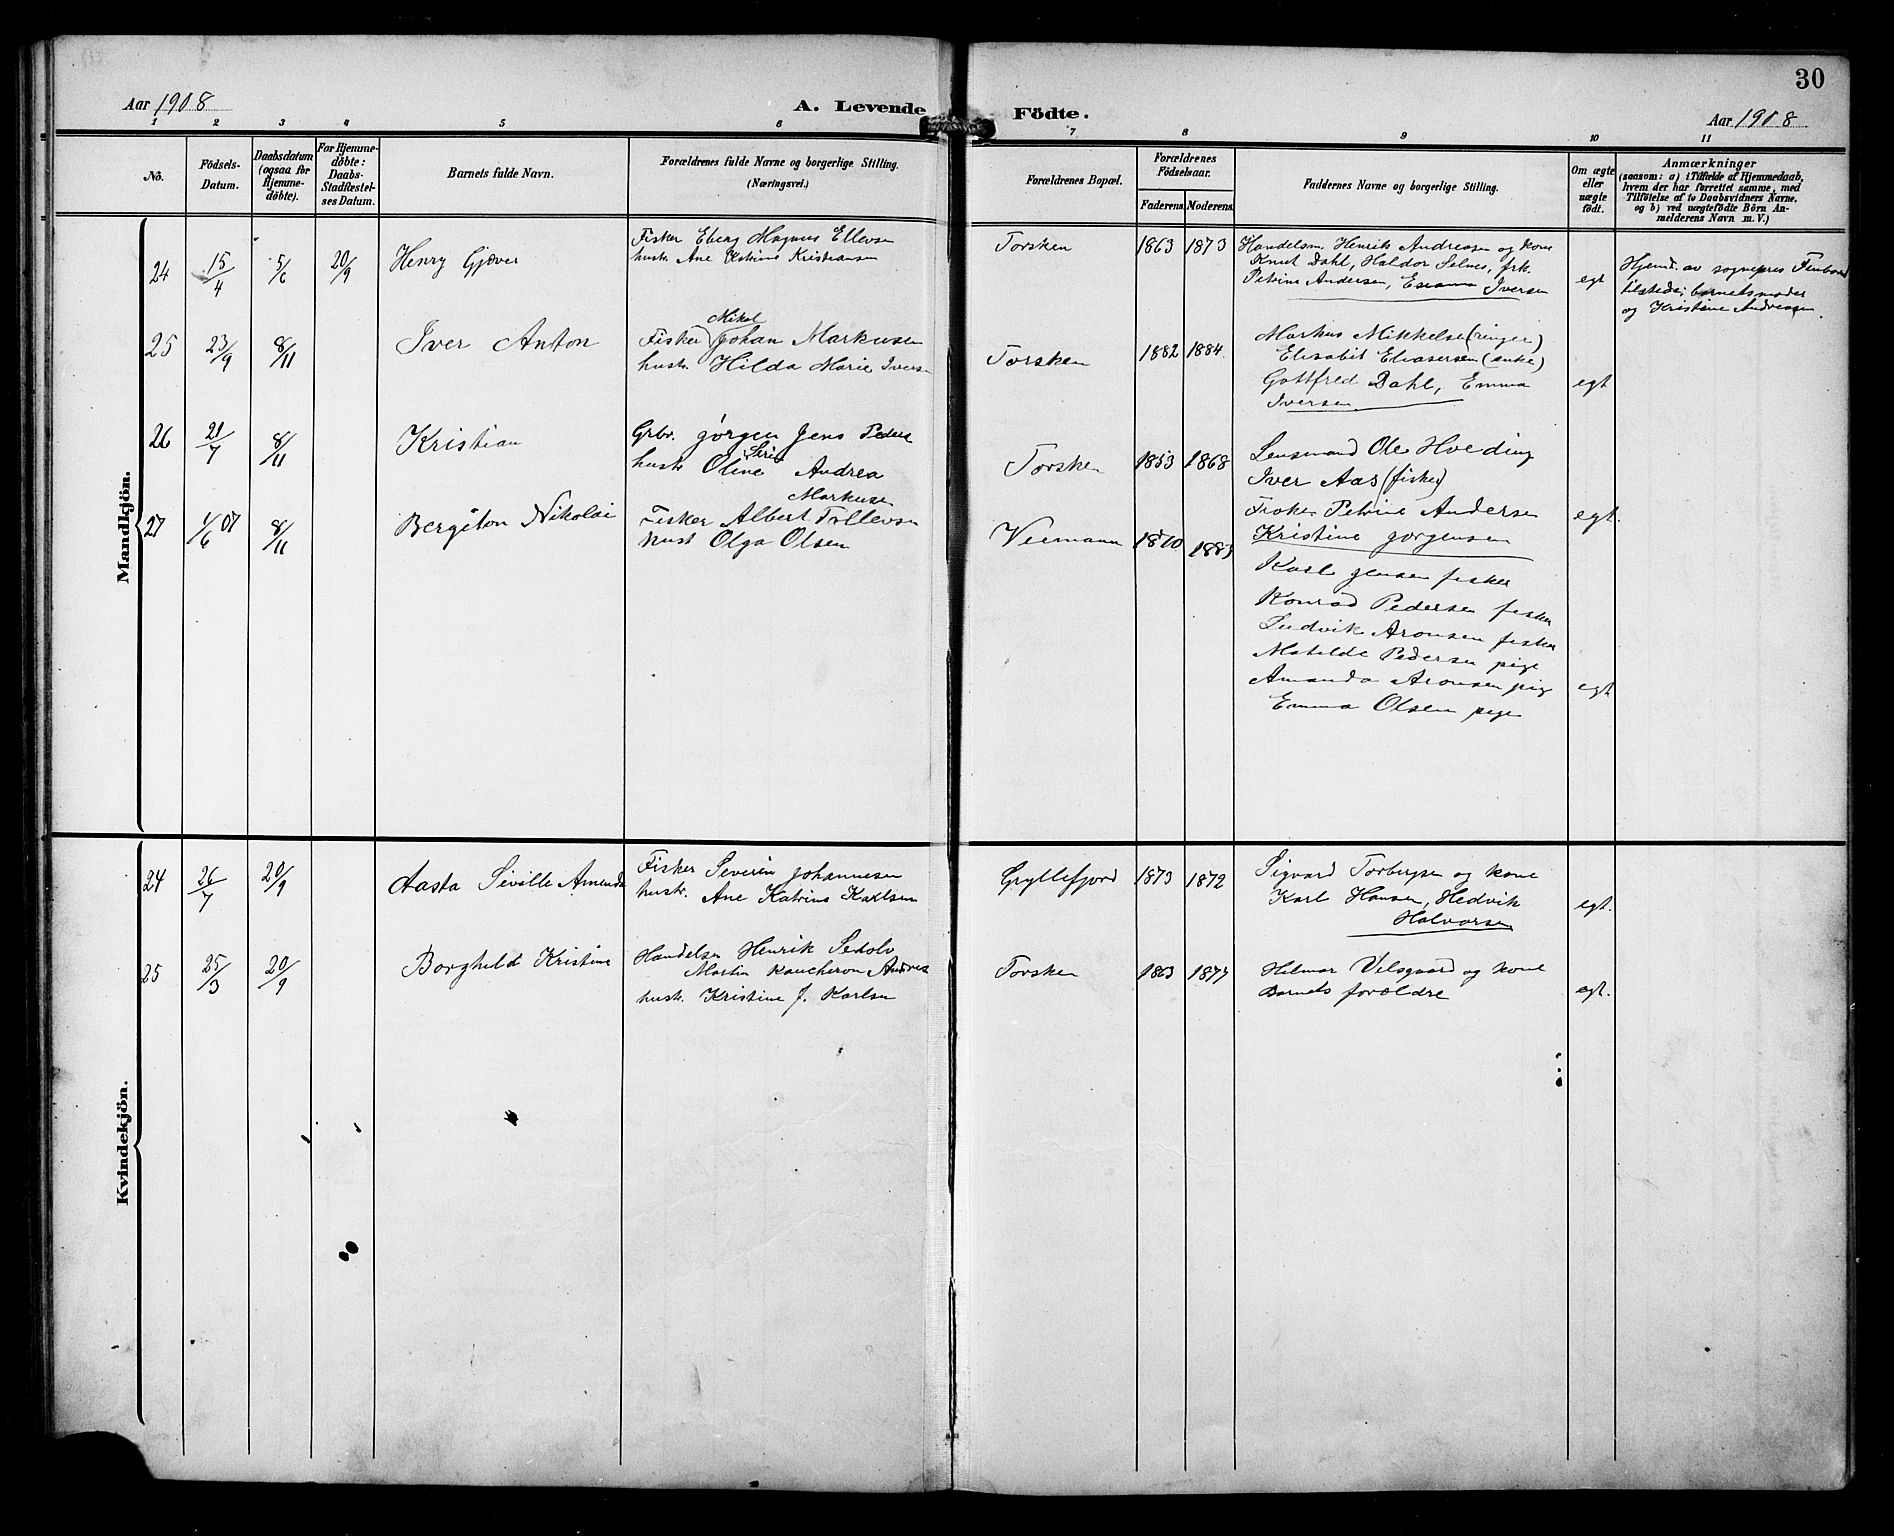 30
Aar 1908
A. Levende Födte.
Aar 1908
1 2 3 4 5 6 7 8 9 10 11
No.
Födsels-
Datum.
Daabsdatum
(ogsaa for
Hjemme-
döbte).
For Hjemme-
döbte:
Daabs-
Stadfæstel-
ses Datum.
Barnets fulde Navn.
Forældrenes fulde Navne og borgerlige Stilling.
(Næringsvei.)
Forældrenes Bopæl.
Forældrenes
Födselsaar.
Faderens. Moderens.
Faddernes Navne og borgerlige Stilling.
Om ægte
eller
uægte
födt.
Anmærkninger
(saasom: a) i Tilfælde af Hjemmedaab,
hvem der har forrettet samme, med
Tilföielse af to Daabsvidners Navne,
og b) ved uægtefödte Börn An-
melderens Navn m. V.)
Mandkjön.
24 15/4 5/6 20/9 Henry Gjæver
Fisker Eberg Magnus Ellevsen
hustr. Ane Katrine Kristiansen
Torsken 1863 1873
Handelsm. Henrik Andreasen og kone
Knut Dahl, Haldor Selnes, frk.
Petrine Andersen, Iversen
egt
Hjemd. av sognepres
tilstede: barnets moder
og Kristine Andresen.
25 23/9 8/11 Iver Anton
Mikal
Fisker Johan Markusen
hustr. Hilda Marie Iversn
Torsken 1882 1884.
Markus Mikkelse (ringer)
Elisabit Eliasersen (enke)
Gottfred Dahl, Emma
Iversen
egt
26 21/7 8/11 Kristian
Grbr. Jørgen Jens Peders
hustr. Oline Andrea
Markuse
Torsken 1853 1868
Lensmand Ole Hveding
Iver Aas (fisker)
Frøken Petrine Andersen
Kristine Jørgensen
egt.
27 1/6 07 8/11 Bergiton Nikolai
Fisker Albert Tollevsn
hust Olga Olsen
1883
Karl Jensen fisker
Konrad Pedersen fisker
Ludvik Aronsen fisker
Matilde Pedersen pige
Amanda Aronsen pig
Emma Olsen pige
egt
Kvindekjön.
24 26/7 20/9 Aasta Seville Amenda
Fisker Severin Johannesen
hustr. Ane Katrine Karlsen
Gryllefjord 1873 1872
Sigvard Torbergsen og kone
Karl Hansen, Hedvik
Halvorsen
egt.
25 25/3 20/9 Borghild Kristine
Handelsm Henrik
Martin Andres
hustr. Kristine J. Karlsen
Torsken 1863 1877
Helmar Velsgaard og kone
Barnets forældre
egt.